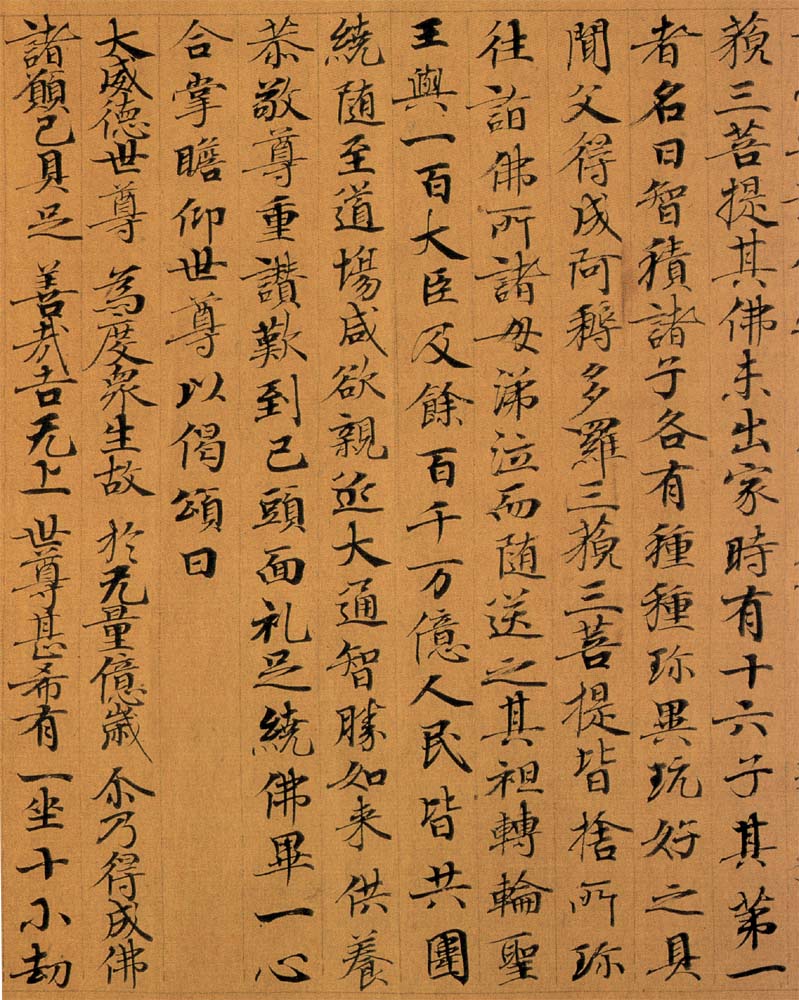 藐三菩提其佛未出家時有十六子其第一
者名曰智積諸子各有種種珎異玩好之具
聞父得成阿耨多羅三藐三菩提皆捨所珎
往詣佛所諸母涕泣而随送之其祖轉輪聖
王與一百大臣及餘百千万億人民皆共圍
繞随至道場咸欲親近大通智勝如来供養
恭敬尊重讃歎到已頭面礼足繞佛畢一心
合掌瞻仰世尊以偈頌曰
大威德世尊 為度衆生故 於无量億歲 尒乃得成佛
諸願已具足 善哉吉无上 世尊甚希有 一坐十小劫